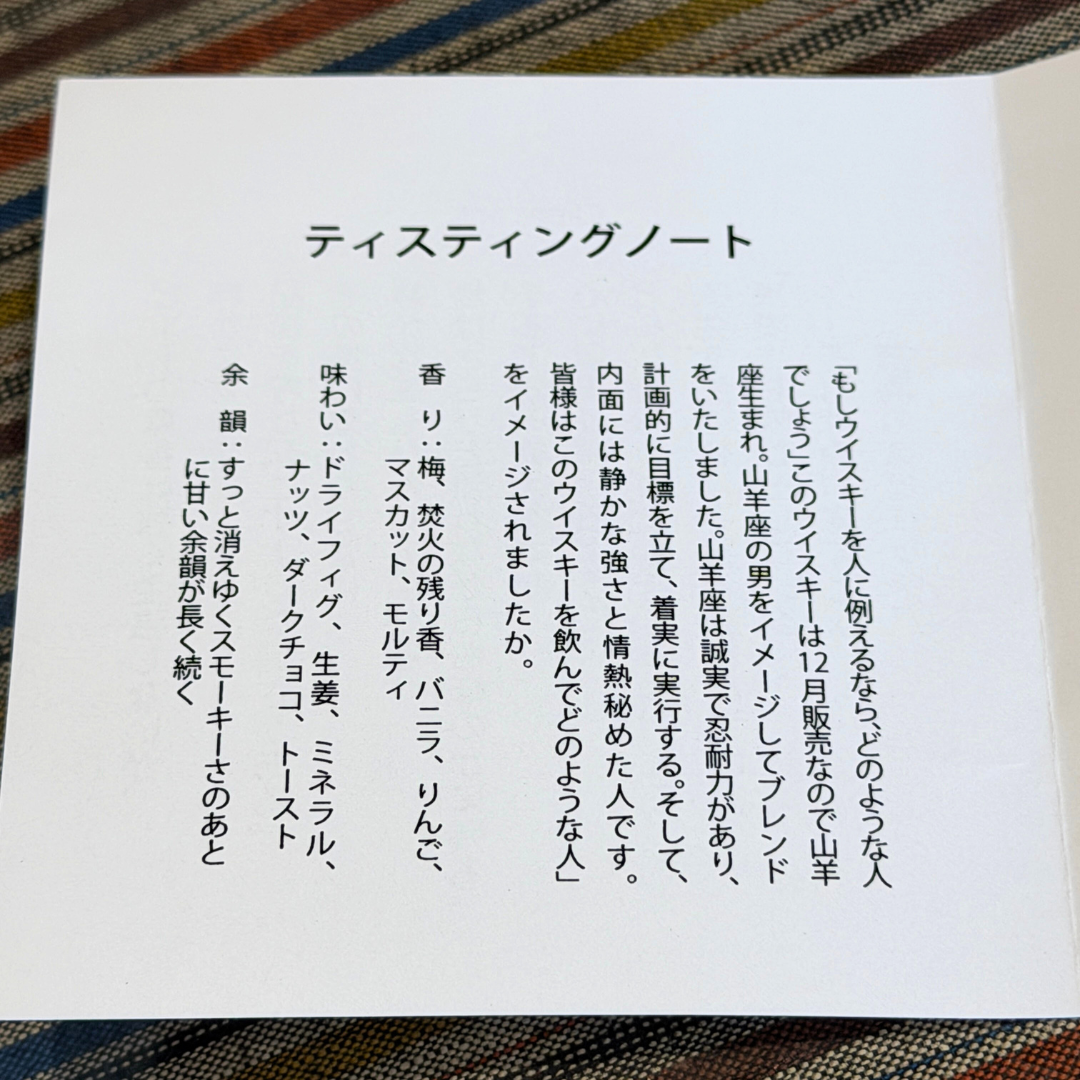 ティスティングノート
「もしウイスキーを人に例えるなら、どのような人
でしょう」このウイスキーは12月販売なので山羊
座生まれ。山羊座の男をイメージしてブレンド
をいたしました。山羊座は誠実で忍耐力があり、
計画的に目標を立て、着実に実行する。そして、
内面には静かな強さと情熱秘めた人です。
皆様はこのウイスキーを飲んでどのような人」
をイメージされましたか。
香り：梅、焚火の残り香、バニラ、りんご、
マスカット、モルティ
味わい：ドライフィグ、生姜、ミネラル、
ナッツ、ダークチョコ、トースト
余韻：すっと消えゆくスモーキーさのあと
に甘い余韻が長く続く